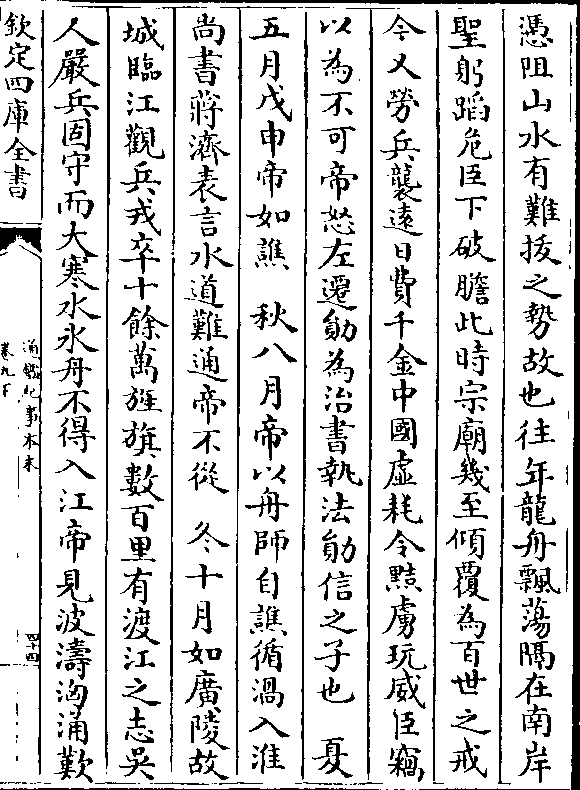 憑阻山水有難拔之勢故也往年龍舟飄蕩隔在南岸
聖躬蹈危臣下破膽此時宗廟幾至傾覆為百世之戒
今又勞兵襲遠日費千金中國虛耗令黠虜玩威臣竊
以為不可帝怒左遷勛為治書執法勛信之子也　夏
五月戊申帝如譙　秋八月帝以舟師自譙循渦入淮
尚書蔣濟表言水道難通帝不從　冬十月如廣陵故
城臨江觀兵戎卒十餘萬旌旗數百里有渡江之志吳
人嚴兵固守而大寒水氷舟不得入江帝見波濤洶涌歎
欽定四庫全書
通鑑紀事本末
卷九下
四十四